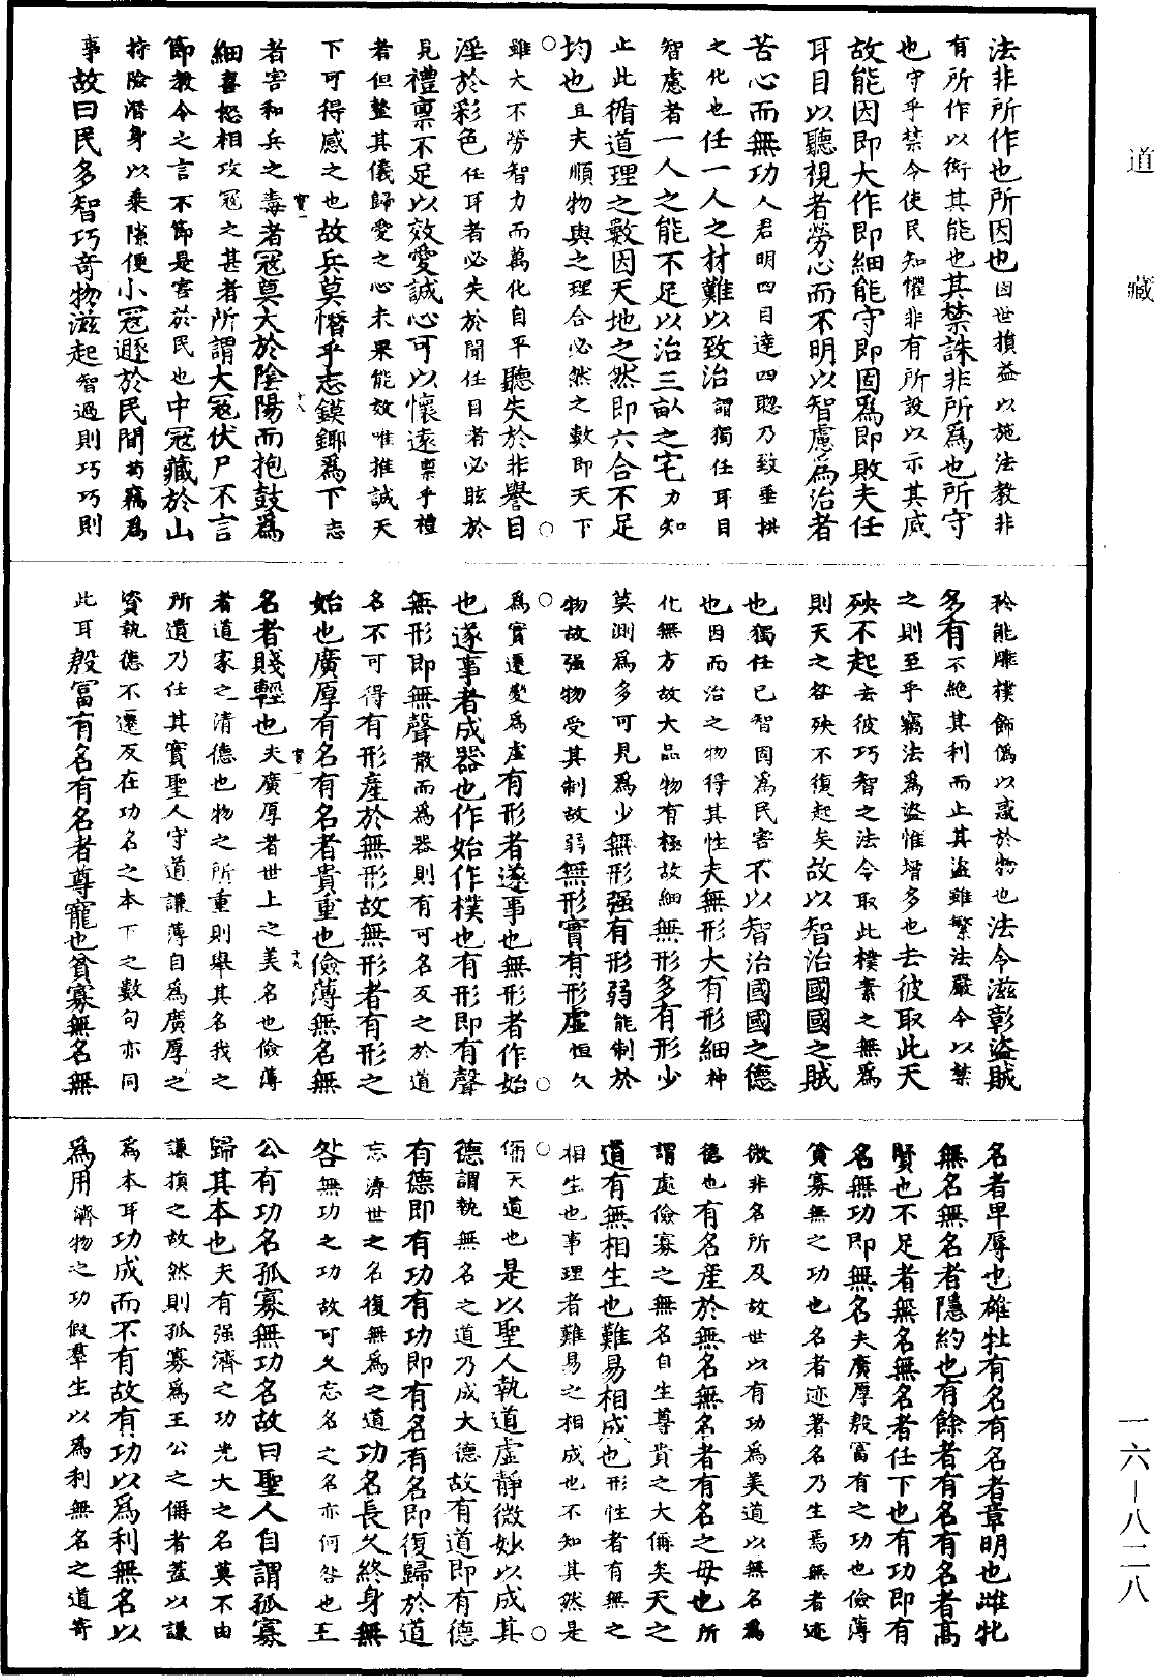 道藏
法非所作也所因也因世損益以施法教非
有所作以衒其能也其禁誅非所為也所守
也守乎禁令使民知懼非有所設以示其威
故能因即大作即細能守即固為即敗夫任
耳目以聽視者勞心而不明以智慮為治者
苦心而無功人君明四目達四聰乃致垂拱
之化也任一人之材難以致治謂獨任耳目
智慮者一人之能不足以治三畝之宅力知
止此循道理之數因天地之然即六合不足
均也且夫順物與之理合必然之數即天下
雖大不勞智力而萬化自平聽失於非譽目
淫於彩色任耳者必失於聞任目者必眩於
見禮亶不足以效愛誠心可以懷遠亶乎禮
者但整其儀歸愛之心未果能效唯推誠天
下可得感之也故兵莫憯乎志鏌鋣為下志
者害和兵之毒者寇莫大於陰陽而抱鼓為
細喜怒相攻寇之甚者所謂大寇伏尸不言
節教令之言不節是害於民也中寇藏於山
持險潛身以乘隙便小寇遯於民間苟竊為
事故曰民多智巧奇物滋起智過則巧巧則
矜能雕樸飾偽以惑於物也法令滋彰盜賊
多有不絕其利而止其盜雖繁法嚴令以禁
之則至乎竊法為盜惟增多也去彼取此天
殃不起去彼巧智之法令取此樸素之無為
則天之咎殃不復起矣故以智治國國之賊
也獨任已智固為民害不以智治國國之德
也因而治之物得其性夫無形大有形細神
化無方故大品物有極故細無形多有形少
莫測為多可見為少無形强有形弱能制於
物故强物受其制故弱無形實有形虛恒久
為實遷變為虛有形者遂事也無形者作始
也遂事者成器也作始作樸也有形即有聲
無形即無聲散而為器則有可名反之於道
名不可得有形產於無形故無形者有形之
始也廣厚有名有名者貴重也儉薄無名無
名者賤輕也夫廣厚者世上之美名也儉薄
者道家之清德也物之所重則舉其名我之
所遺乃任其實聖人守道謙薄自為廣厚之
資執德不還反在功名之本下之數句亦同
此耳殷富有名有名者尊寵也貧寡無名無
名者卑辱也雄牡有名有名者章明也雌牝
無名無名者隱約也有餘者有名有名者高
賢也不足者無名無名者任下也有功即有
名無功即無名夫廣厚殷富有之功也儉薄
貧寡無之功也名者迹著名乃生焉無者迹
微非名所及故世以有功為美道以無名為
德也有名產於無名無名者有名之母也所
謂處儉寡之無名自生尊貴之大偁矣天之
道有無相生也難易相成也形性者有無之
相生也事理者難易之相成也不知其然是
偭天道也是以聖人執道虛靜微妙以成其
德謂執無名之道乃成大德故有道即有德
有德即有功有功即有名有名即復歸於道
忘濟世之名復無為之道功名長久終身無
咎無功之功故可久忘名之名亦何咎也王
公有功名孤寡無功名故曰聖人自謂孤寡
歸其本也夫有强濟之功光大之名莫不由
謙損之故然則孤寡為王公之偁者蓋以謙
為本耳功成而不有故有功以為利無名以
為用濟物之功假羣生以為利無名之道寄
一六—八二八